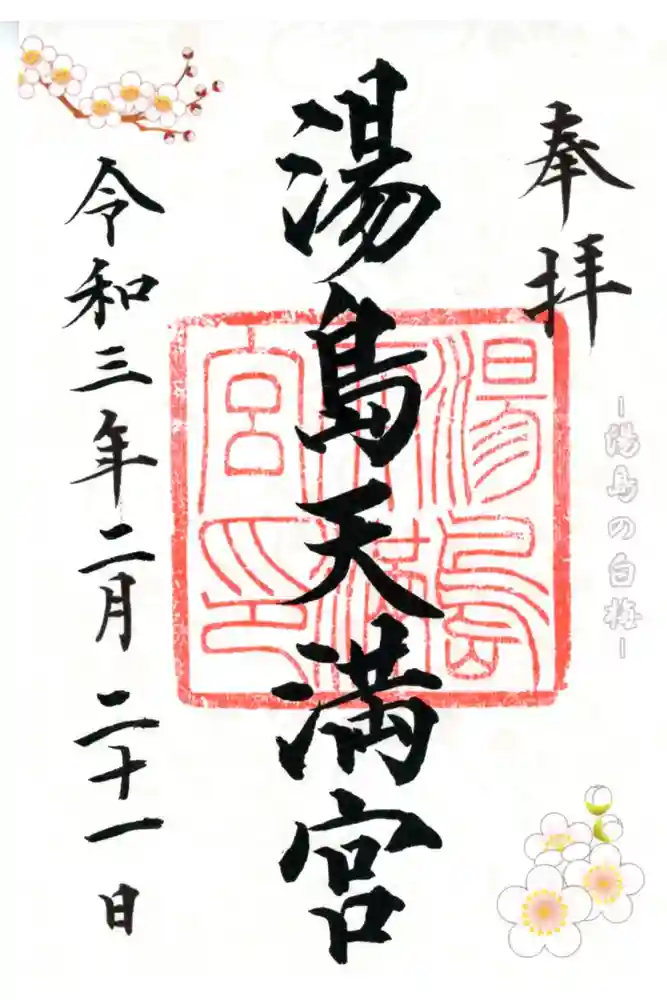 奉拝
-湯島の白梅-
湯島天満宮
湯島天満宮印
令和三年二月二十一日